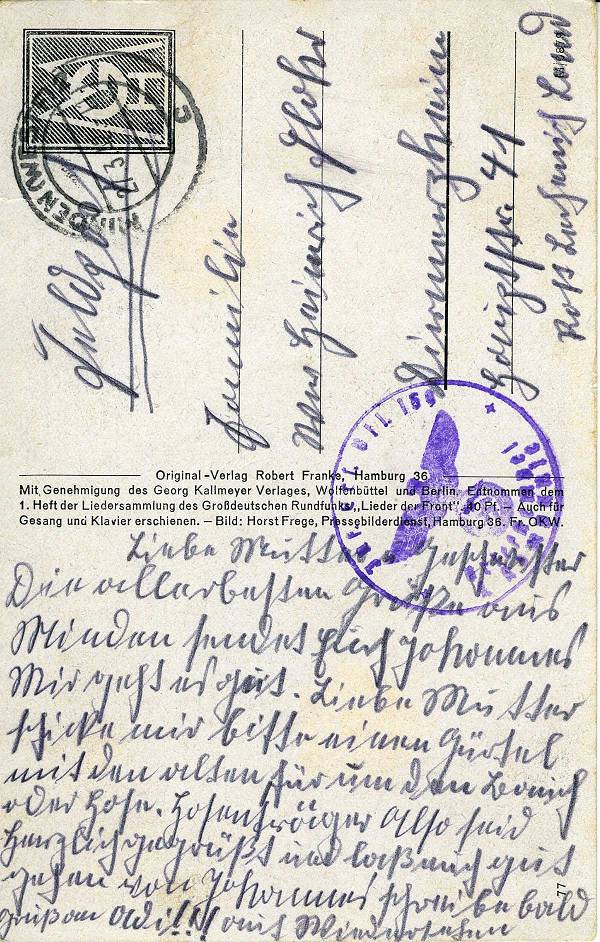 MINDEN (WESTF)
Feldpost
Familie
Wwe Heinrich
Dirmerzheim
Hauptstr. 41
Post Lechenich Land
Original-Verlag Robert Franke, Hamburg 36
Mit Genehmigung des Georg Kallmeyer Verlages, Wolfenbüttel und Berlin. Entnommen dem
1. Heft der Liedersammlung des Großdeutschen Rundfunks „Lieder der Front“, 40 Pf. – Auch für
Gesang und Klavier erschienen. – Bild: Horst Frege, Pressebilderdienst, Hamburg 36. Fr. OKW.
Liebe Mutter u Geschwister
Die allerbesten Grüße aus
Minden sendet Euch Johannes
Mir geht es gut. Liebe Mutter
schicke mir bitte einen Gürtel
mit den alten für um den Bauch
oder Hose. Hosenträger Also seid
Herzlich gegrüßt und laß euch gut
gehen von Johannes schreibe bald
Gruß an Adi!!!! auf Wiedersehen
77